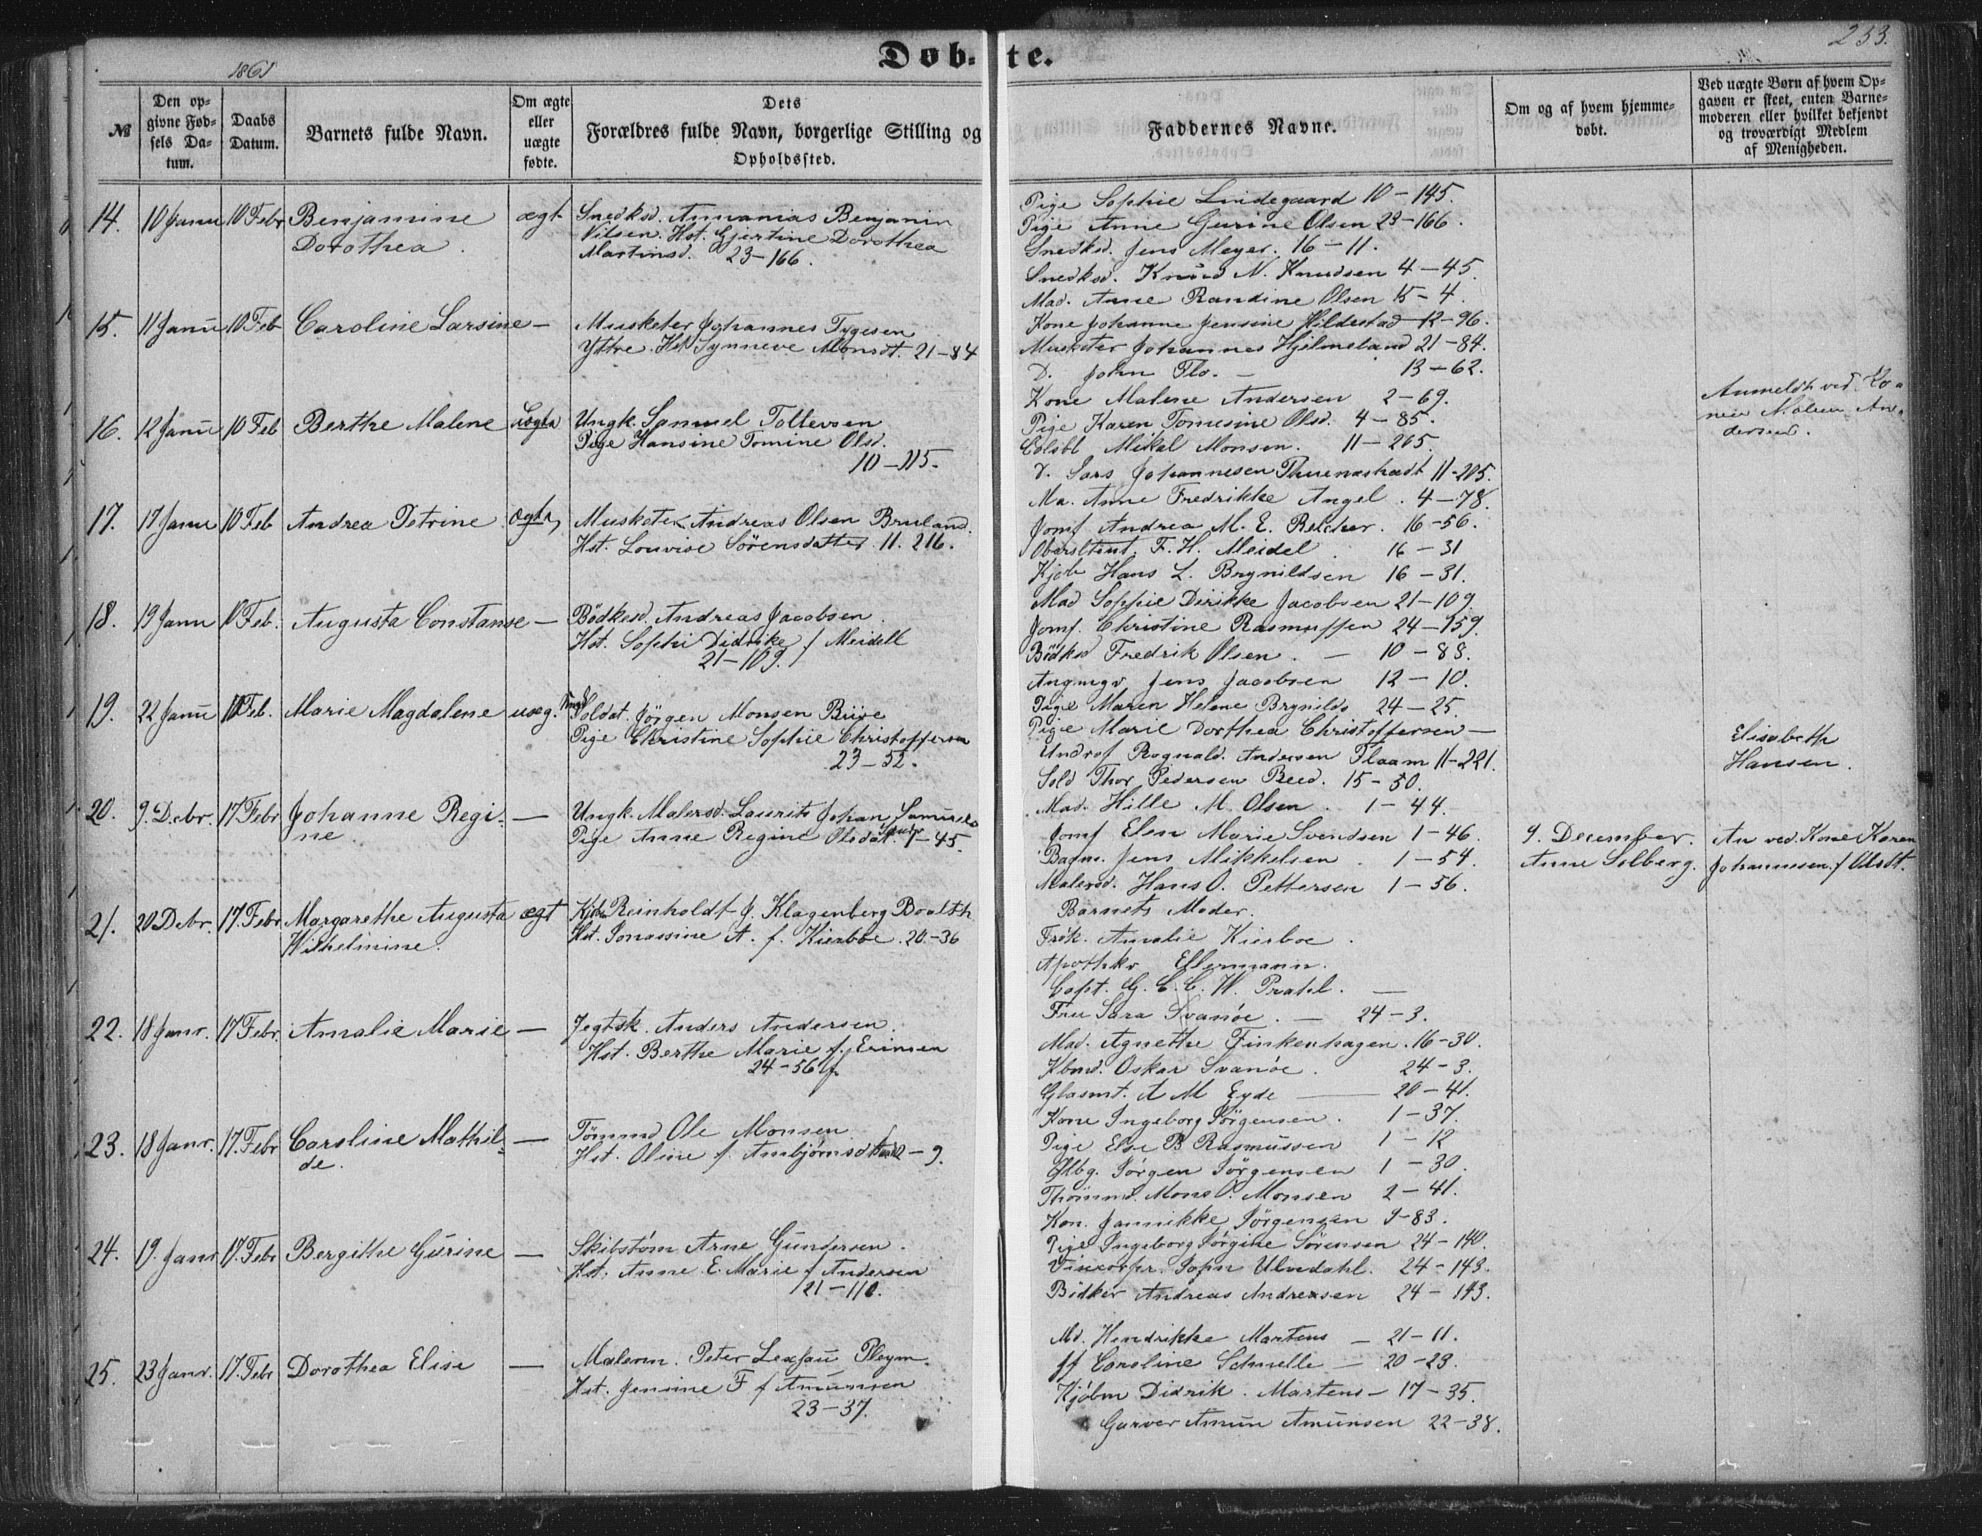 253.
Døb- te.
1861
№
Den op-
givne Fød-
sels Da-
tum.
Daabs
Datum.
Barnets fulde Navn.
Om ægte
eller
uægte
fødte.
Dets
Forældres fulde Navn, borgerlige Stilling og
Opholdssted.
Faddernes Navne.
Om og af hvem hjemme-
døbt.
Ved uægte Børn af hvem Op-
gaven er skeet, enten Barne-
moderen eller hvilket bekjendt
og troværdigt Medlem
af Menigheden.
14. 10 Janu 10 Febr Benjamine
Dorothea
ægt
Snedksd. Annanias Benjamin
Nilsen. Hst. Gjertine Dorothea
Martinsd. 23-166.
Pige Sophie Lindegaard 10-145.
Pige Anne Gurine Olsen 23-166.
Snedksd. Jens Meyer. 16-11.
Snedksd. Knud N. Knudsen 4-45.
15. 11 Janu 10 Feb Caroline Larsine —
Musketer Johannes Tygesen
Yttre. Hst. Synneve Monsdt. 21-84
Mad. Anne Randine Olsen 15-4.
Kone Johanne Jensine Hildestad 12-96.
Musketer Johannes Hjelmeland 21-84.
D. John Flo. — 13-62.
16. 12 Janu 10 Feb Berthe Malene Uægte
Ungk. Samuel Tollevsen
Pige Hansine Tomine Olsd.
10-115.
Kone Malene Andersen 2-69.
Pige Karen Tomesine Olsd. 4-85.
Mikal Monsen. 11-205.
D. Lars Johannesen 11-205.
Anmeldt ved Ko-
nen Malene An-
dersen.
17. 17 Janu 10 Feb Andrea Petrine ægte
Musketer Andreas Olsen Bruland.
Hst. Lovise Sørensdatter. 11. 216.
Ma. Anne Fredrikke Angel. 4-78.
Jomf. Andrea M. E. Reicher. 16-56.
Oberstltent. F. H. Meidel. 16-31
Kjøb Hans L. Brynildsen 16-31.
18. 19 Janu 10 Feb. Augusta Constanse —
Bödksd. Andreas Jacobsen
Hst. Sophi Didrike f Meidell
21-109.
Mad Sophie Dirikke Jacobsen 21-109.
Jomf. Christine Rasmussen 24-159.
Bödksd Fredrik Olsen. — 10-88.
Jens Jacobsen 12-10.
19. 22 Janu 10 Feb. Marie Magdalene uæg.
Ungk
Soldat. Jörgen Monsen
Pige Christine Sophie Christoffersen
23-52.
Pige Maren Helene Brynilds 24-25.
Pige Marie Dorthea Christoffersen —
Undrof Rognald Andersen Flaam 11-221.
Sold Thor Pedersen Reed. 15-50.
Elisabeth
Hansen.
20. 9. Debr. 17 Febr Johanne Regi-
ne —
Ungk. Malersd. Laurits Johan
Pige Anne Regine Olsdat. 1-45.
Mad. Hille M. Olsen. 1-44.
Jomf Elen Marie Svendsen 1-46.
Jens Mikkelsen. 1-54.
Malersd. Hans O. Pettersen 1-56.
9. December.
Anne Solberg.
An ved Kone Karen
Johannesen f Olsdt.
21. 20 Debr. 17. Febr Margarethe Augusta
Wilhelmine.
ægt
Reinholdt J. Klagenberg Boalth
Hst. Jonassine A. f. Kierboe. 20-36
Barnets Moder.
Frøk. Amalie Kierboe.
Apothkr Ellermann.
Capt. G. C. C. W. Prahl. —
22. 18 Janr. 17. Febr. Amalie Marie —
Jegtsk. Anders Andersen.
Hst. Berthe Marie f. Erimsen
24-56
Fru Sara Svanøe. — 24-3.
Mad. Agnethe Finkenhagen. 16-30.
Kbmd. Oskar Svanøe. 24-3.
Glasmt. A M Eyde — 20-41.
23. 18 Janr. 17. Febr Caroline Mathil-
de. —
Tömmd Ole Monsen
Hst. Oline f. Anbjörnsd — 9.
Kone Ingeborg Jörgensen. 1-37.
Pige Else B Rasmussen 1-12
Jörgen Jörgensen 1-30.
Thömmd. Mons O. Monsen 2-41.
24. 19. Janr 17. Febr Bergithe Gurine —
Skibstøm. Arne Gundersen.
Hst. Anne E. Marie f Andersen
21-110.
Kon. Jannikke Jörgensen 9-83.
Pige Ingeborg Jörgine Sörensen 24-140.
John Ulvdahl. 24-143.
Bödker Andreas Andreasen 24-143.
25. 23 Janr. 17. Febr Dorothea Elise —
Malerm. Peter Lexau Pleym.
Hst. Jensine F f Amunsen
23-37.
Md. Hendrikke Martens — 21-11.
Caroline Schnelle — 20-23.
Kjöbm Didrik. Martens — 17-35.
Garver Amun Amunsen 22-38.